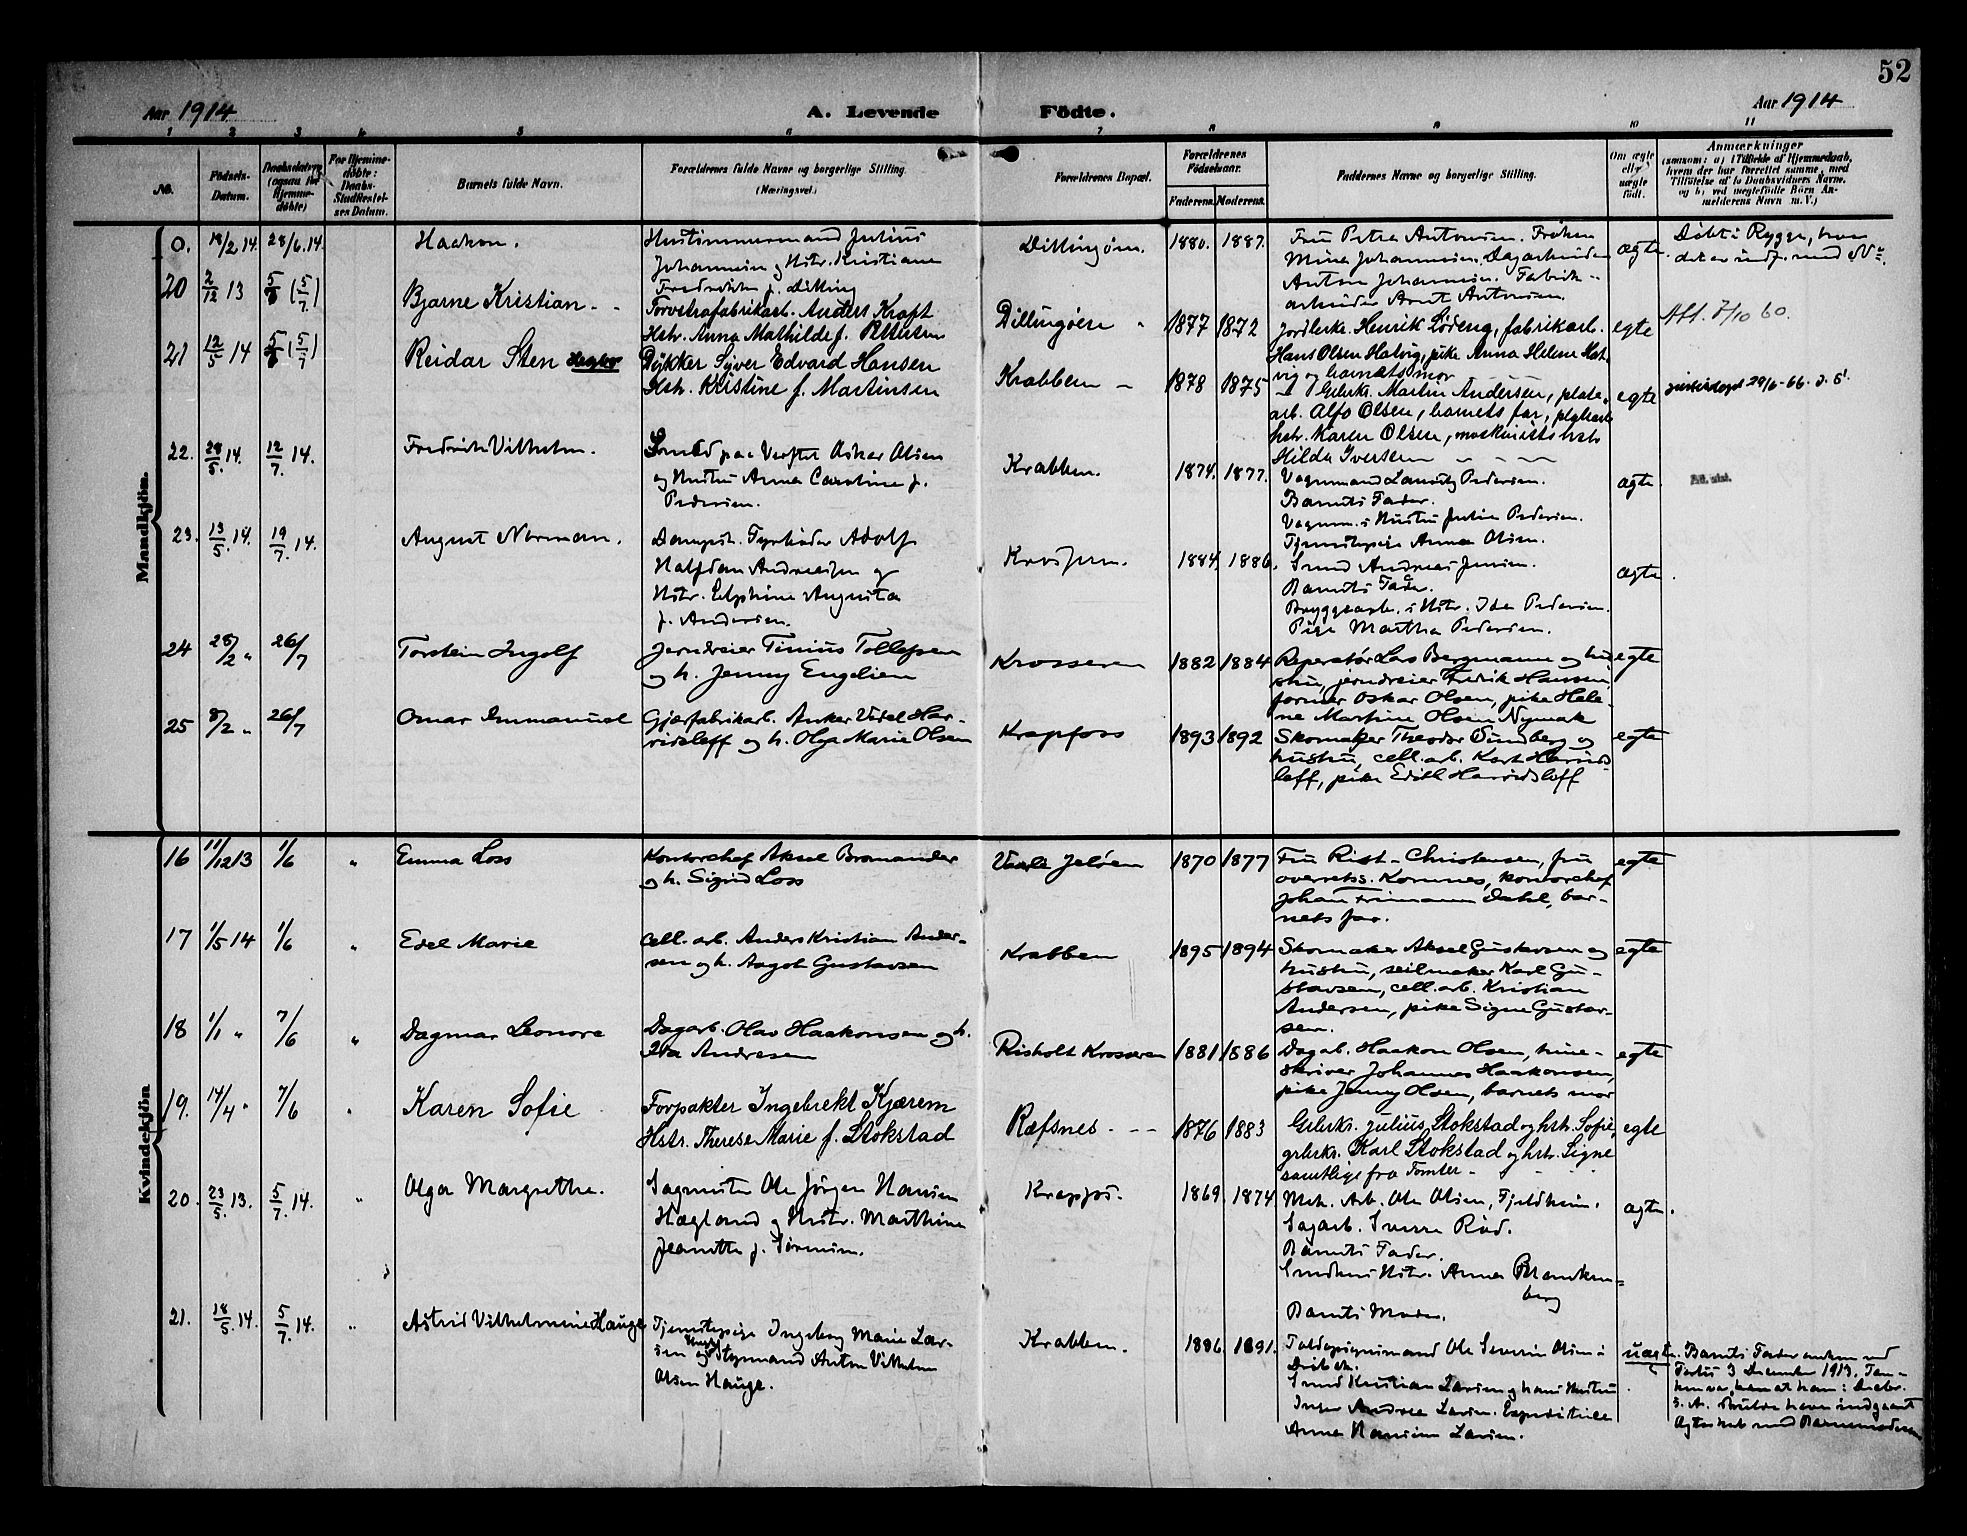 52
Aar 1914 A. Levende Födte. Aar 1914
1 2 3 4 5 6 7 8 9 10 11
No.
Födsels-Datum.
Daabsdatum (ogsaa for Hjemme-döbte)
For Hjemme-döbte: Daabs-Stadfæstel-ses Datum.
Barnets fulde Navn.
Forældrenes fulde Navne og borgerlige Stilling.
(Næringsvei.)
Forældrenes Bopæl.
Forældrenes Födselsaar.
Faderens. Moderens.
Faddernes Navne og borgerlige Stilling.
Om ægte eller uægte födt.
Anmærkninger
(saasom: a) i Tilfælde af Hjemmedaab, hvem der har forrettet samme, med Tilföielse af to Daabsvidners Navne, og b) ved uægtefödte Börn An-melderens Navn m. V.)
Mandkjön.
0. 18/2 14. 28/6. 14. Haakon.
Hustömmermand Julius
Johannesen og Hstr. Kristiane
Fredriksen f. Dilling
Dillingöen. 1880. 1887.
Fru Petra Antonsen. Fröken
Mina Johannesen. Dagarbeider
Anton Johannesen. Fabrik-
arbeider Arnt Antonsen.
ægte.
Döbt i Rygge, hvor
det er indf. med No.
20 2/12 13 5/6 (5/7) Bjarne Kristian
Torvstrøfabrikarb. Anders Kraft
Hstr. Anna Mathilde f. Pettersen
Dillingöen 1877 1872
Jordbrkr. Henrik Lödeng, fabrikarb.
Hans Olsen Hatvig, pike Anna Helene Hat
vig og barnets mor
egte
Att. 7/10 60.
21 12/5 14 5/6 (5/7) Reidar Sten
Dykker Syver Edvard Hansen
Hstr. Kristine f. Martinsen
Krabben - 1878 1875
Grbrkr. Martin Andersen, plate-
arb. Alfo Olsen, barnets far,
hstr. Karen Olsen, maskinists hstr.
Hilda Iversen
egte
22. 28/5 14. 12/7. 14. Fredrik Vilhelm.
Smed paa Verftet Oskar Olsen
og Hustru Anna Caroline f.
Pedersen.
Krabben. 1874. 1877.
Vognmand Lauritz Pedersen.
Barnets Fader.
Vognm.s Hustru Julie Pedersen.
Tjenestepige Anna Olsen.
ægte
23. 13/5. 14. 19/7. 14. August Norman.
Dampsk. Fyrböder Adolf
Halfdan Andreassen og
Hstr. Elphine Augusta
f. Andersen.
1884. 1886.
Smed Andreas Jensen.
Barnets Fader.
Bryggearb.s Hstr. Ida Pedersen.
Pige Martha Pedersen.
ægte.
24 28/2 " 26/7 Torstein Ingolf
Jerndreier Tinius Tollefsen
og h. Jenny Engelien
Krosseren 1882 1884
Reperatör Lars Bergmann og hu
stru, jerndreier Fredrik Hansen,
former Oskar Olsen, pike Hele-
ne Martine Olsen Nymak
egte
25 8/2 " 26/7 Omar Immanuel
Gjærfabrikarb. Anker Videl Har-
ridsleff og h. Olga Marie Olsen
Krapfoss 1893 1892
Skomaker Theodor Sundberg og
hustru, cell.arb. Karl Harrids-
leff, pike Edill Harridsleff
egte
Kvindekjön
16 11/12 13 1/6 " Emma Loss
Kontorchef Aksel Bromander
og h. Sigrid Loss
Jelöen 1870 1877
Fru Rist-Christensen, fru
overrets. Komnes, kontorchef
Johan Frimann Dahl, bar-
nets far.
egte
17 1/5 14 1/6 " Edel Marie
cell.arb. Anders Kristian Ander-
sen og h. Aagot Gustavsen
Krabben 1895 1894
Skomaker Aksel Gustavsen og
hustru, seilmaker Karl Gu-
stavsen, cell.arb. Kristian
Andersen, pike Signe Gustav-
sen.
egte
18 1/1 " 7/6 " Dagmar Leonore
Dagarb. Olav Haakonsen og h.
Ida Andresen
Risholt Krosseren 1881 1886
Dagarb. Haakon Olsen, time-
skriver Johannes Haakonsen,
pike Jenny Olsen, barnets mor
egte
19. 14/4 " 7/6 " Karen Sofie
Forpakter Ingebrekt Kjærem
Hstr. Therese Marie f. Stokstad
Ræfsnes 1876 1883
Grbrkr. Julius Stokstad og hstr. Sofie,
grbrkr. Karl Stokstad og hstr. Signe
samtlige fra Tomter
egte
20. 23/5. 13. 5/7. 14. " Olga Margrethe.
Sagmester Ole Jörgen Hansen
Hægland og Hustr. Marthine
Jeanette f. Sörensen.
Krapfos. 1869. 1874
Mek. Arb. Ole Olsen, Fjeldheim.
Sagarb. Sverre Röd.
Barnets Fader.
Smedens Hstr. Anna Branken-
berg
Barnets Moder.
ægte.
21. 18/5. 14. 5/7. 14. " Astrid Vilhelmine Hauge
Tjenestepige Ingeborg Marie Lar-
sen og Ungk. Styrmand Anton Vilhelm
Olsen Hauge.
Krabben. 1886. 1891.
Toldopsynsmand Ole Severin Olsen i
Dröbak.
Smed Kristian Larsen og hans Hustru
Inger Andrea Larsen. Expeditrice
Anna Hansine Larsen.
uægte.
Barnets Fader omkom ved
Forlis 3 December 1913.
5. A. skulde have indgaaet
Ægteskab med Barnemoderen